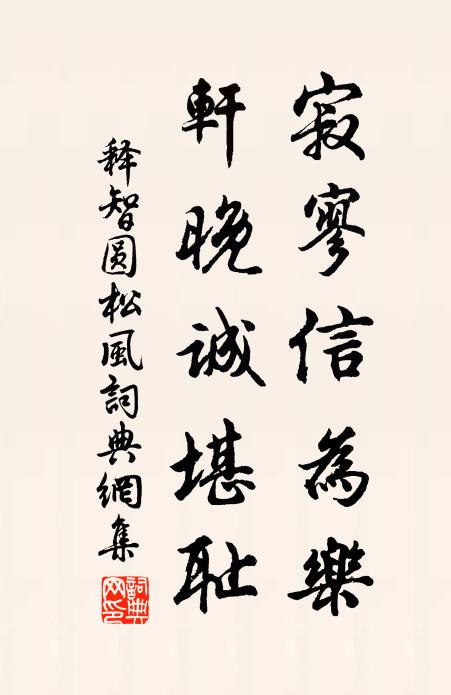 寂寥信為樂
軒晚誠堪耻
释智圆松風詞典網集
詞典網印